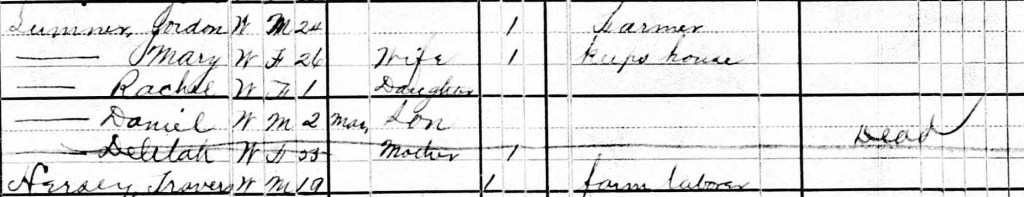 Sumner, Gordon W M 24 1 Farmer
— Mary W F 26 Wife 1 Keeps house
— Rachel W F 1 Daughter
— Daniel W M 2 Mar, Son
— Delilah W F Mother 1 Dead
Hersey, Travers W M 19 1 farm laborer